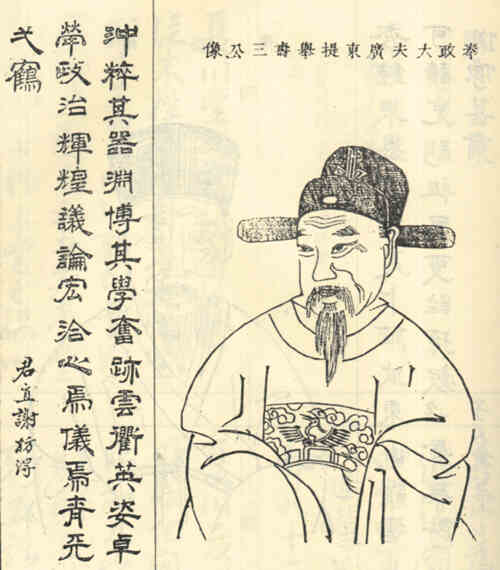 奉政大夫廣東提舉壽三公像
沖粹其器淵博其學奮跡雲衢英姿卓
犖政治輝煌議論宏洽心焉儀焉青天
弌鶴
君直謝枋淂